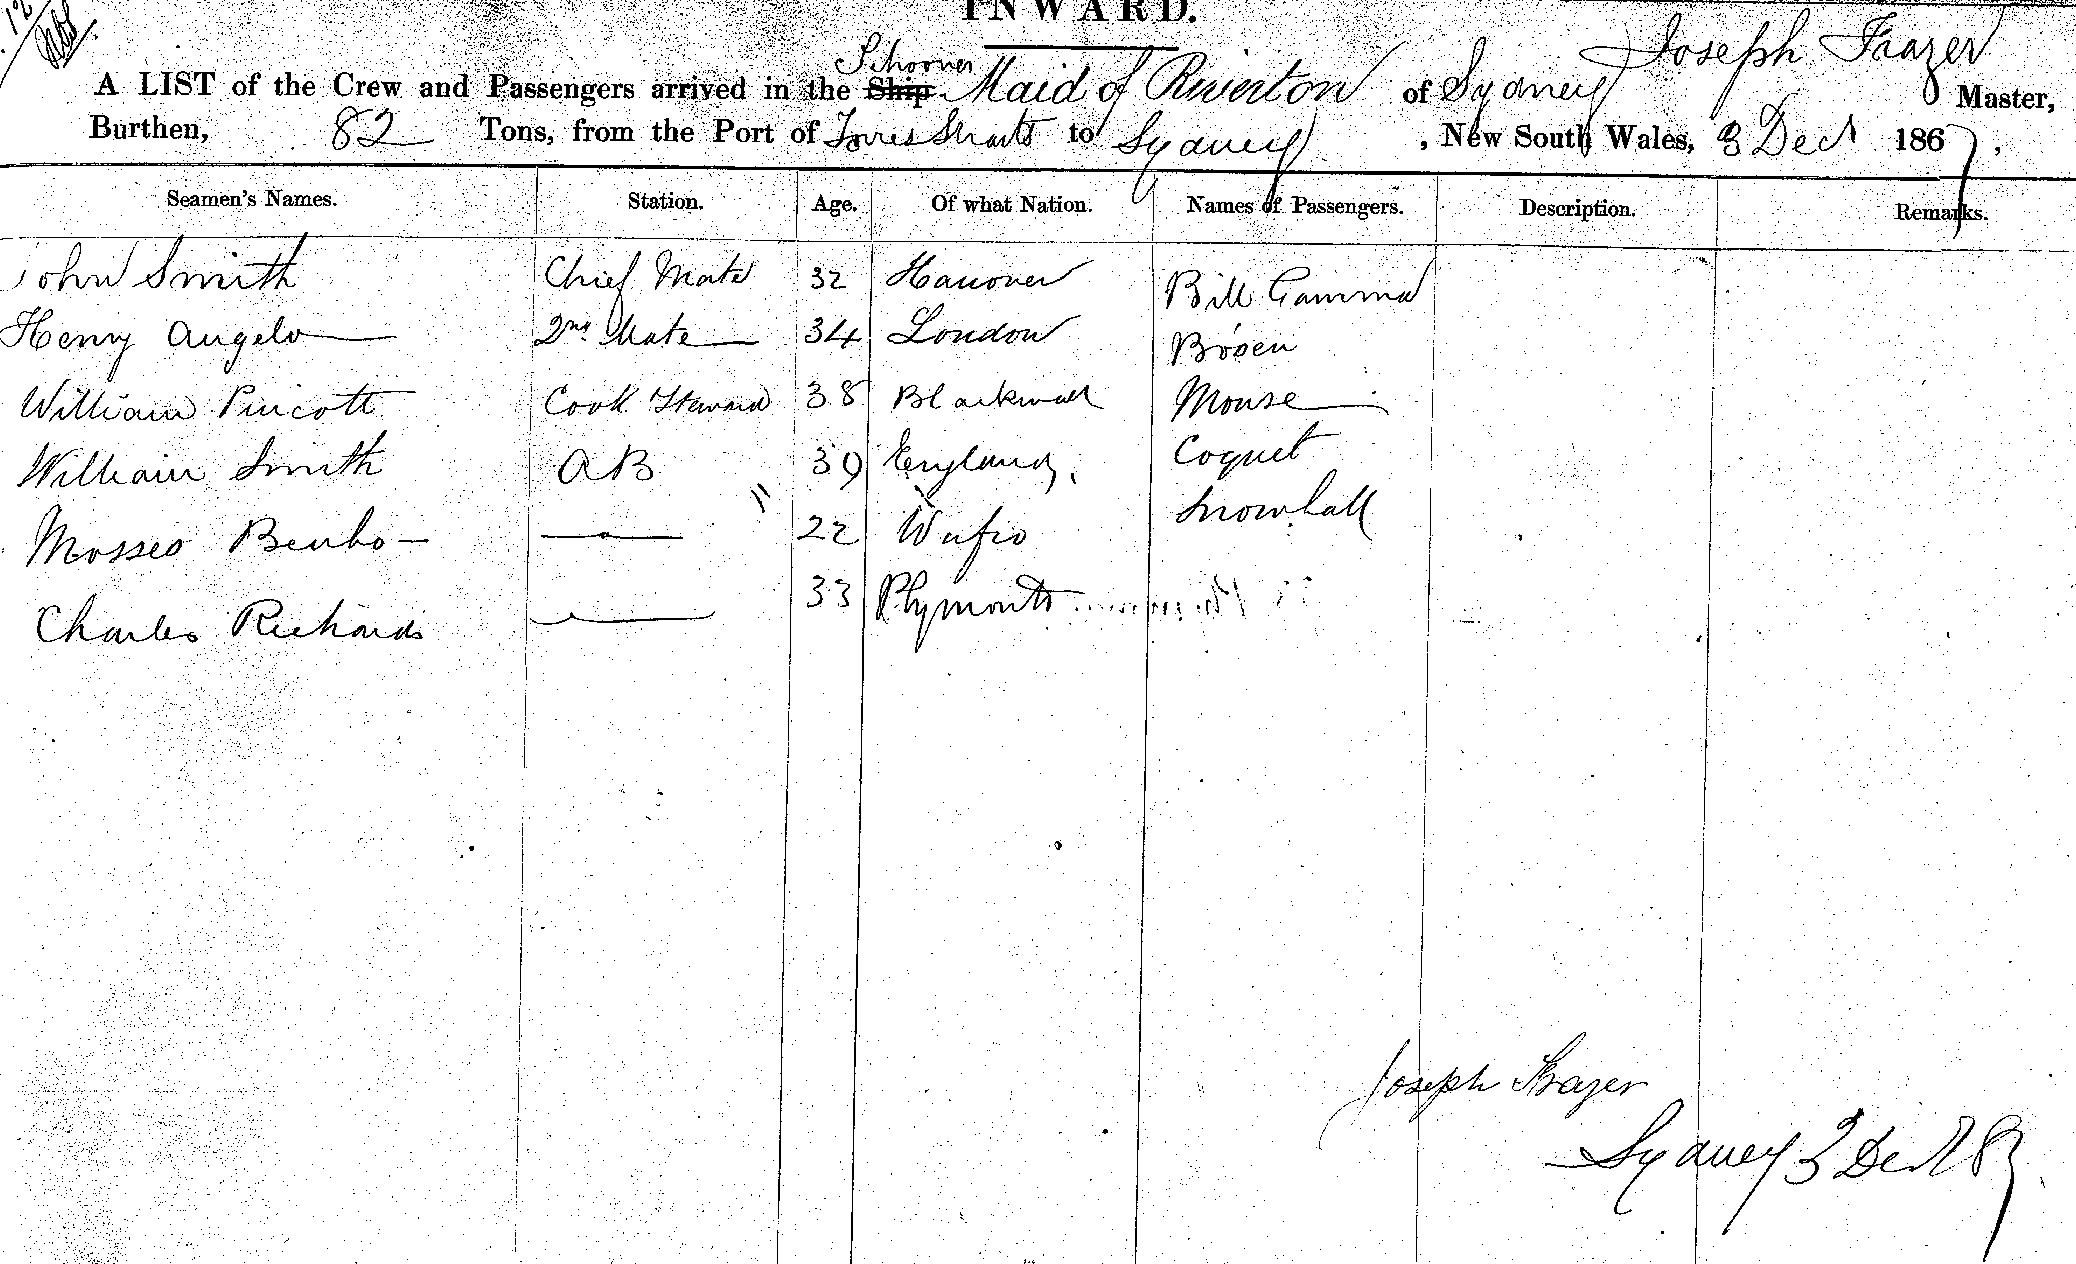 INWARD.
A LIST of the Crew and Passengers arrived in the Ship Schooner Maid of Riverton of Sydney Joseph Frazer Master,
Burthen, 82 Tons, from the Port of Torres Straits to Sydney, New South Wales, 3 Decr 1867,
Seamen's Names. Station. Age. Of what Nation. Names of Passengers. Description. Remarks.
John Smith Chief Mate 32 Hanover Bill Gamma
Henry Angelo 2nd Mate 34 London
William Pincott Cook Steward 38 Blackwall Mouse
William Smith AB 39 England Coquet
22 Snowball
Charles Richards 33 Plymouth
Joseph Frazer
Sydney 3 Decr